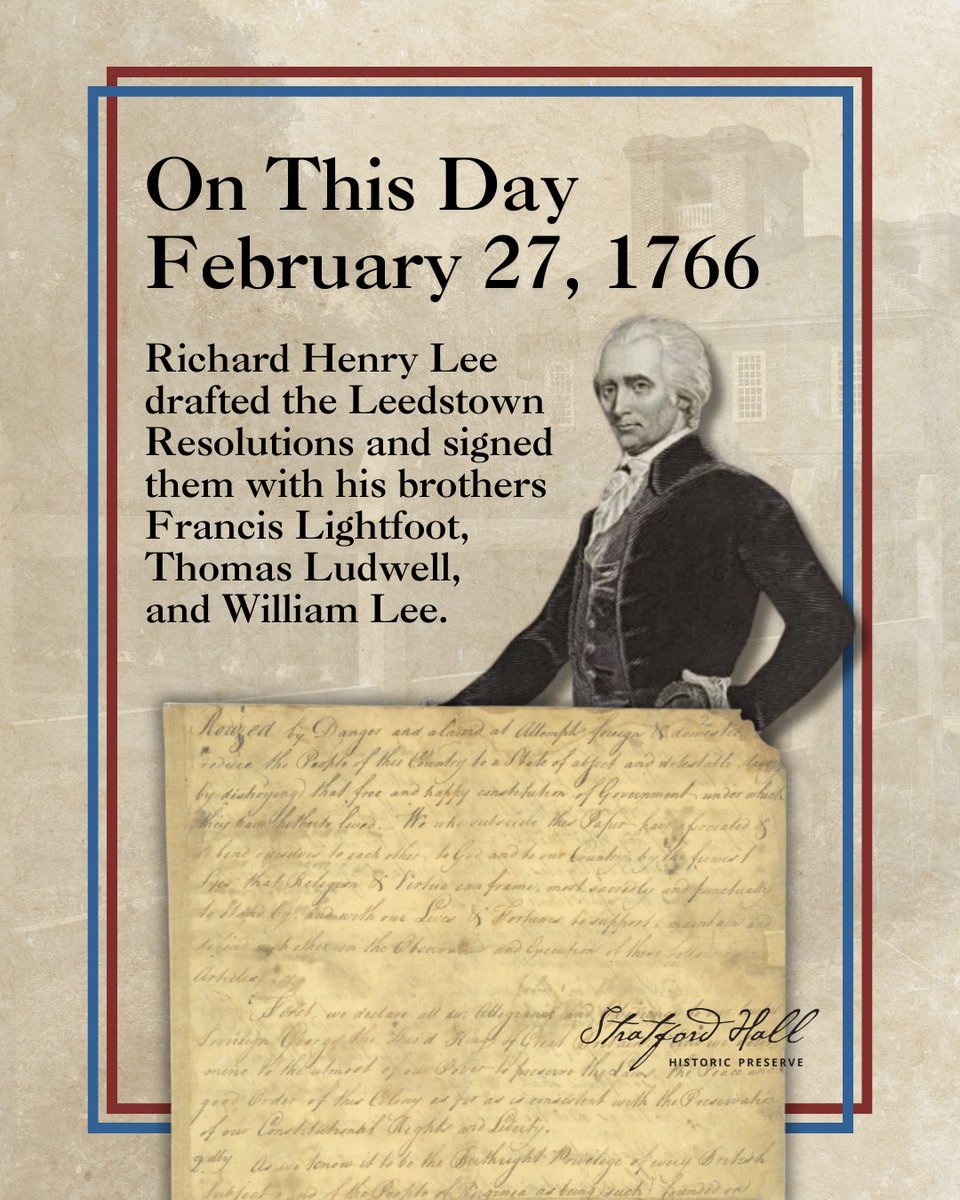 On This Day
February 27, 1766
Richard Henry Lee
drafted the Leedstown
Resolutions and signed
them with his brothers
Francis Lightfoot,
Thomas Ludwell,
and William Lee.
Rouzed by Danger and alarmd at Attempts foreign & domestic
reduce the People of this Country to a State of abject and detestable slavery
by distroying that free and happy constitution of Government, under which
they have hitherto lived. We who subscribe this Paper have associated &
bind ourselves to each other, to God and to our Country, by the firmest
Tyes that Religion & Virtue can frame, most sacredly and punctually
to stand by, and with our Lives & Fortunes to support, maintain and
defend each other in the Observance and Execution of these following
Articles.
First, we declare all due Allegiance and
Sovereign George the Third King of Great
mine to the utmost of our Power to preserve the Laws, the Peace and
good Order of this Colony as far as is consistent with the Preservation
of our Constitutional Rights and Liberty.
2dly As we know it to be the Birthright Privilege of every British
Subject, and of the People of Virginia as being such founded on
Stratford Hall
HISTORIC PRESERVE